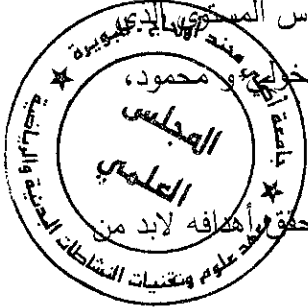 س المستوى الذي
خولي و محمود،
حقق أهدافه لابد من
جامعة أكلي محند أولحاج البويرة
المجلس
العلمي
معهد علوم وتقنيات النشاطات البدنية والرياضية